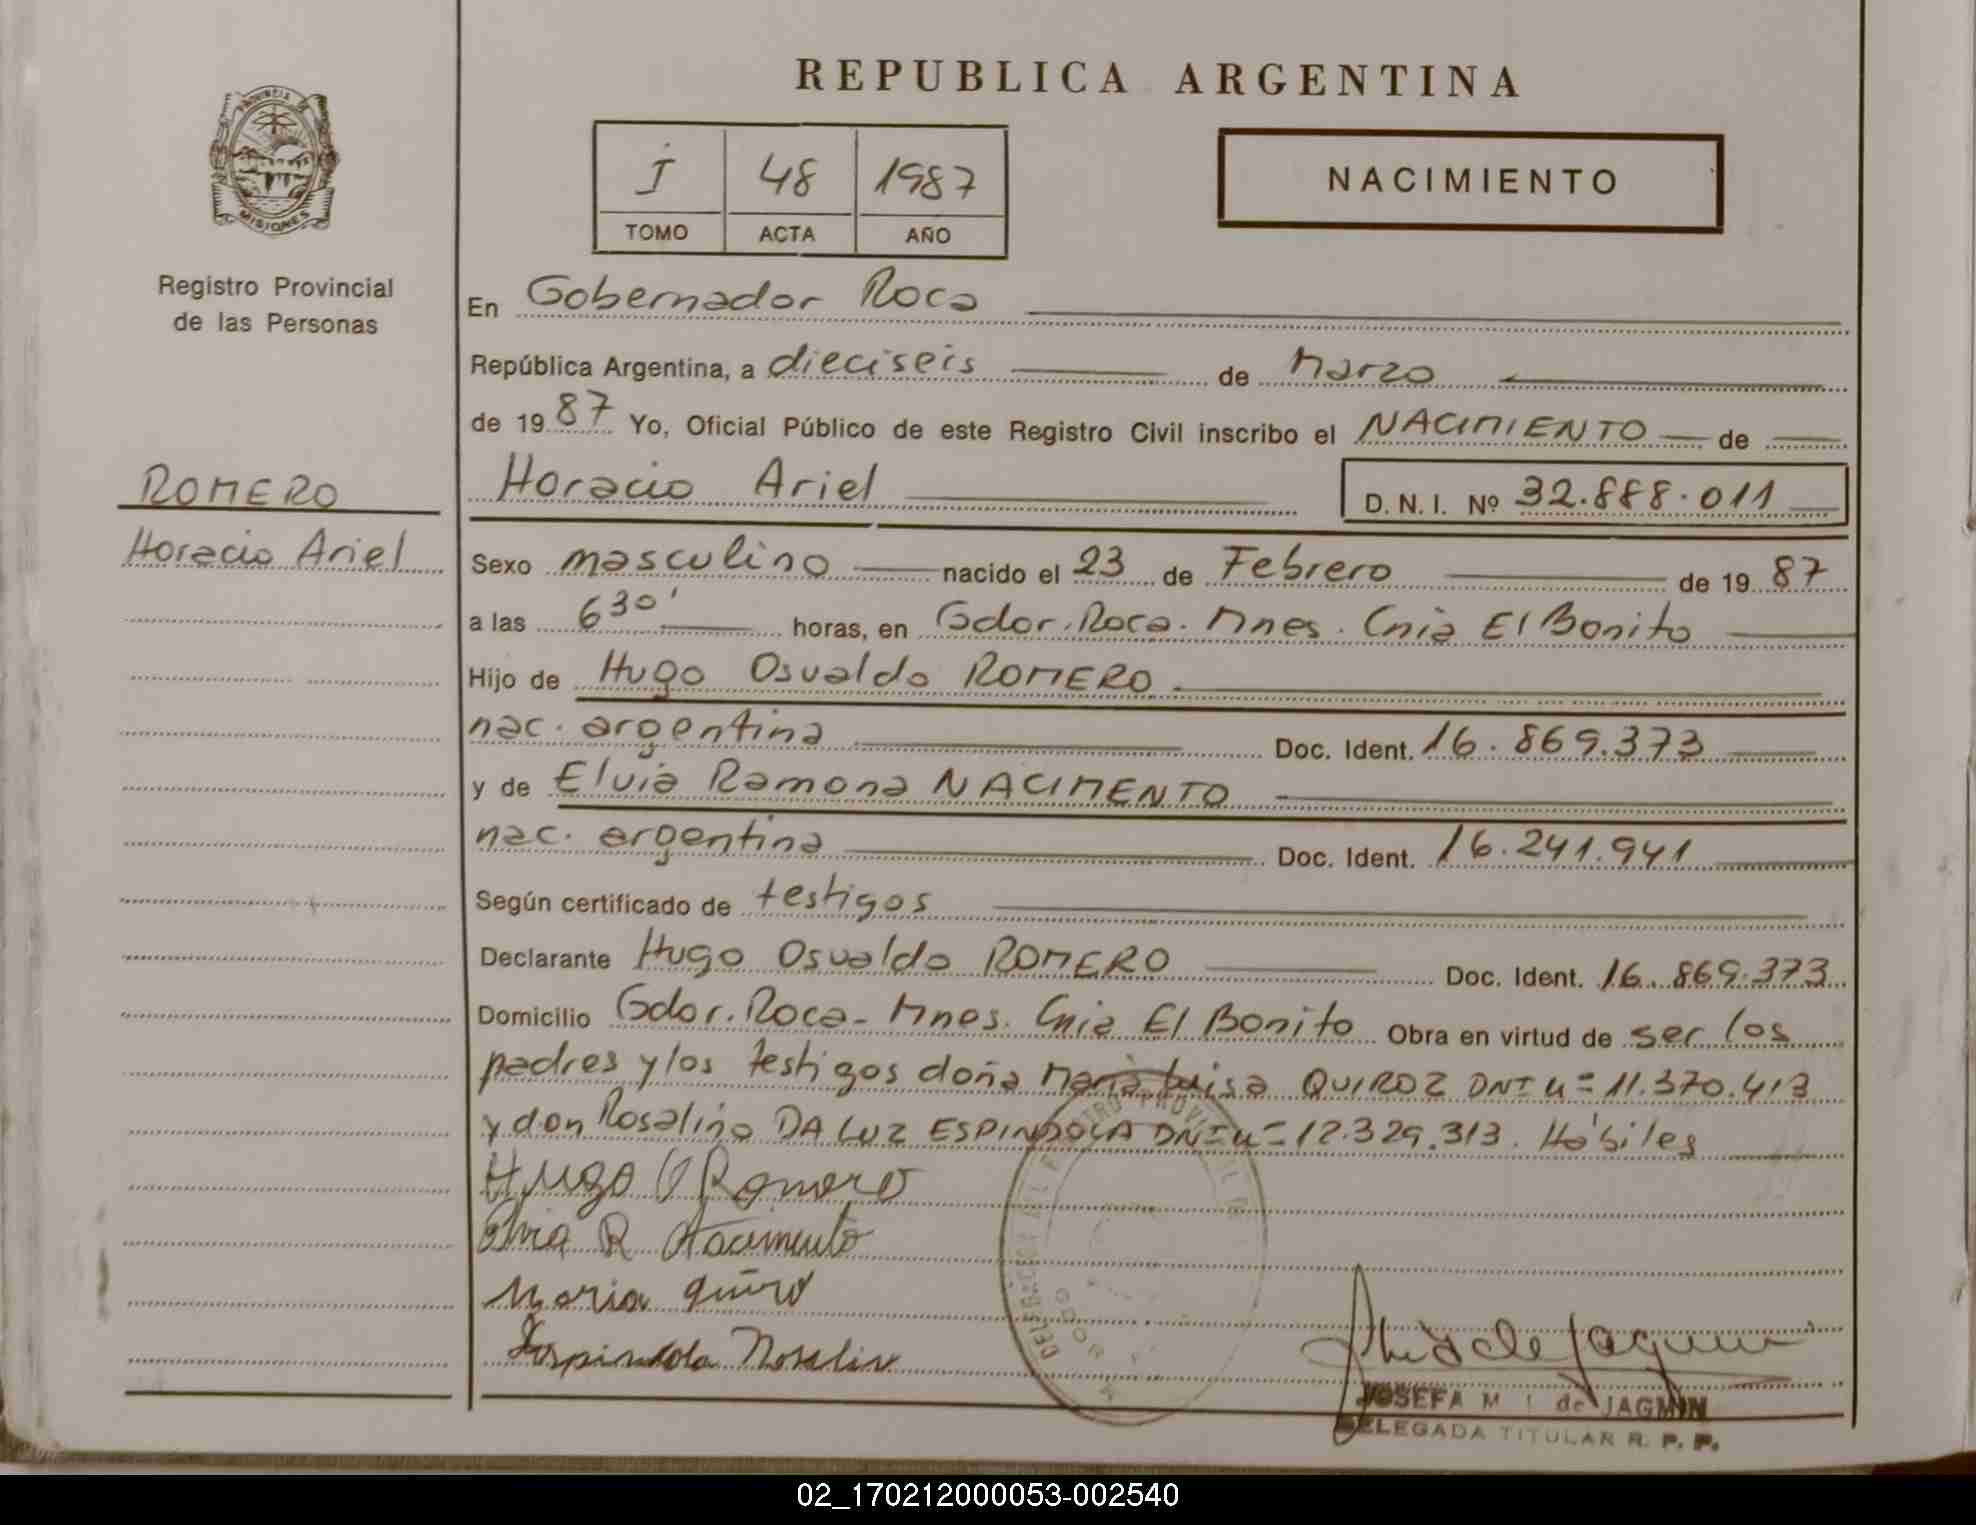 REPUBLICA ARGENTINA
PROVINCIA DE
MISIONES
Registro Provincial
de las Personas
I 48 1987
TOMO ACTA AÑO
NACIMIENTO
En Gobernador Roca
República Argentina, a dieciseis de Marzo
de 1987 Yo, Oficial Público de este Registro Civil inscribo el NACIMIENTO de
ROMERO
Horacio Ariel
Horacio Ariel D. N. I. Nº 32.888.011
Sexo masculino nacido el 23 de Febrero de 1987
a las 6 30' horas, en Gdor. Roca. Mnes. Cnia El Bonito
Hijo de Hugo Osvaldo ROMERO
nac. argentina Doc. Ident. 16.869.373
y de Elvia Ramona NACIMENTO
nac. argentina Doc. Ident. 16.241.941
Según certificado de testigos
Declarante Hugo Osvaldo ROMERO Doc. Ident. 16.869.373
Domicilio Gdor. Roca - Mnes. Cnia El Bonito Obra en virtud de ser los
padres y los testigos doña Maria Luisa QUIROZ DNI n= 11.370.413
y don Rosalino DA LUZ ESPINDOLA DNI n= 12.329.313. Hábiles
Hugo O Romero
Elvia R Nacimento
Maria
Espindola Rosalin
JOSEFA M de JAGMIN
DELEGADA TITULAR R. P. P.
02_170212000053-002540